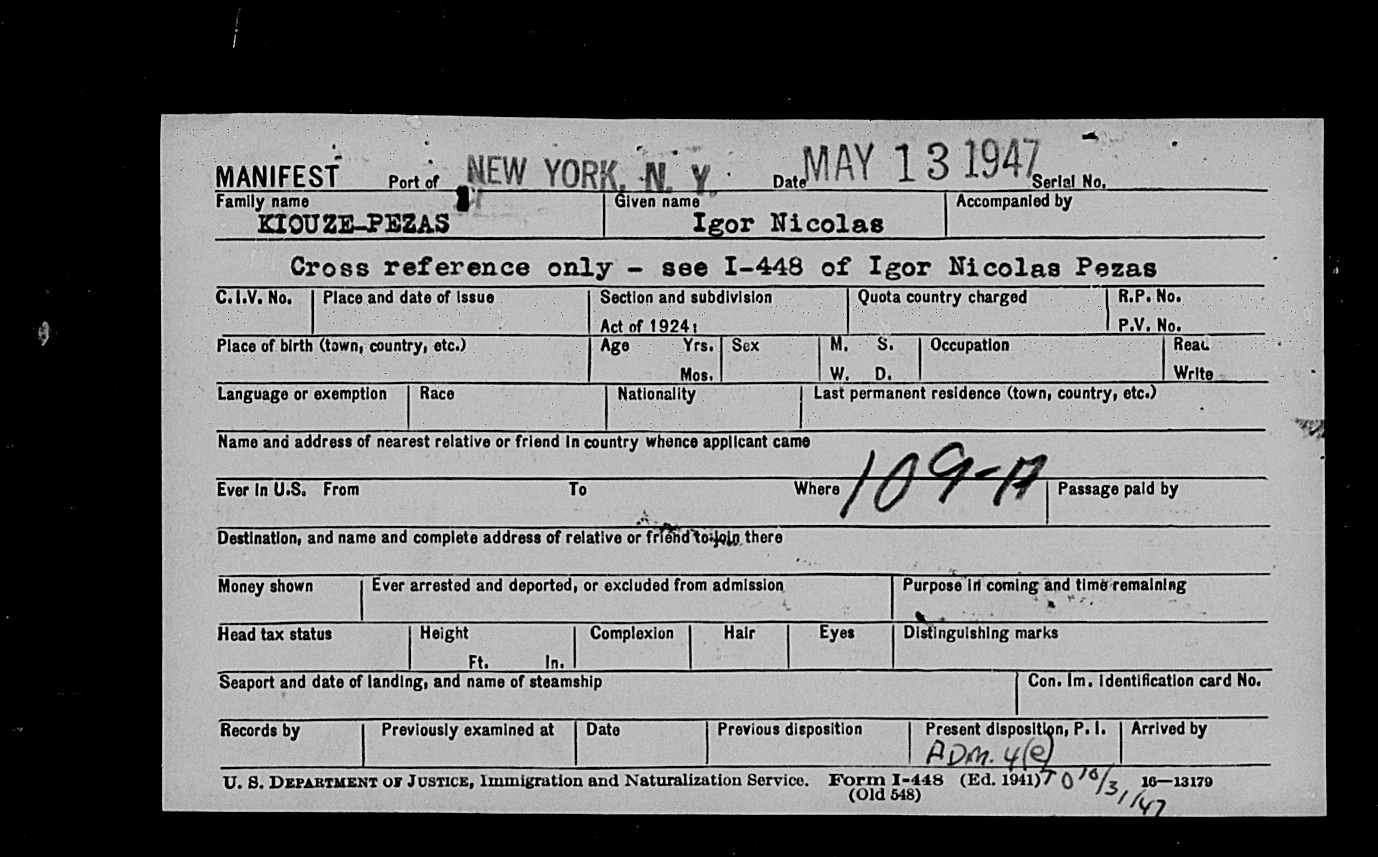 MANIFEST Port of NEW YORK, N. Y. Date MAY 13 1947 Serial No.
Family name Given name Accompanied by
KIOUZE-PEZAS Igor Nicolas
Cross reference only - see I-448 of Igor Nicolas Pezas
C.I.V. No. Place and date of issue Section and subdivision Quota country charged R.P. No.
Act of 1924: P.V. No.
Place of birth (town, country, etc.) Age Yrs. Sex M. S. Occupation Read
Mos. W. D. Write
Language or exemption Race Nationality Last permanent residence (town, country, etc.)
Name and address of nearest relative or friend in country whence applicant came
109-A
Ever in U.S. From To Where Passage paid by
Destination, and name and complete address of relative or friend to join there
Money shown Ever arrested and deported, or excluded from admission Purpose in coming and time remaining
Head tax status Height Complexion Hair Eyes Distinguishing marks
Ft. In.
Seaport and date of landing, and name of steamship Con. Im. Identification card No.
Records by Previously examined at Date Previous disposition Present disposition, P. I. Arrived by
ADM. 4(e)
U. S. DEPARTMENT OF JUSTICE, Immigration and Naturalization Service. Form I-448 (Ed. 1941) TO 10/31/47 16—13179
(Old 548)